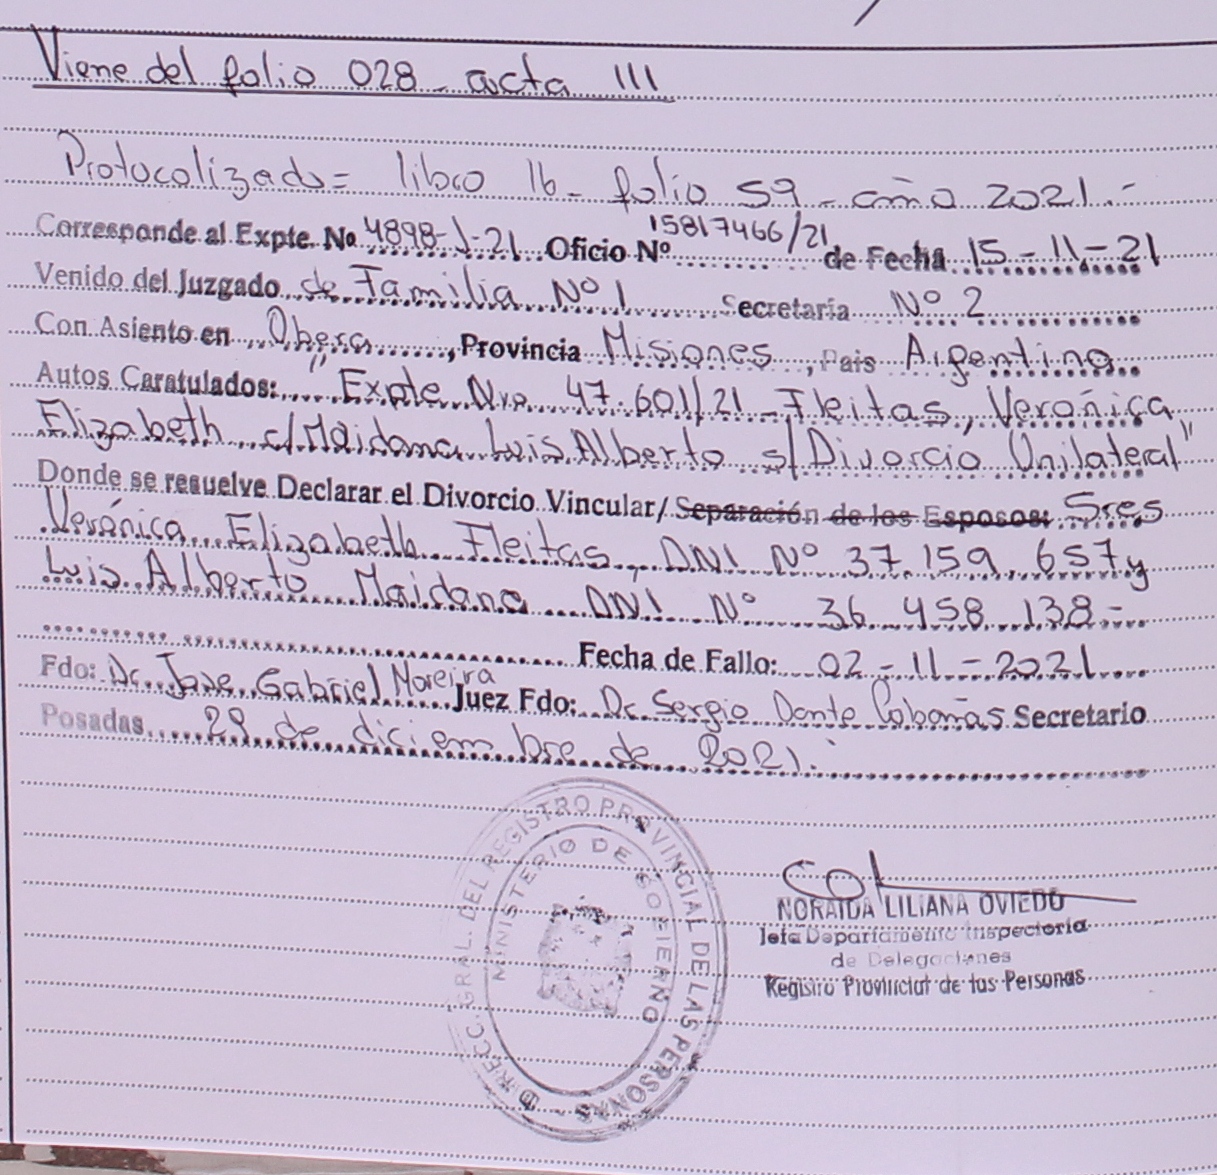 Viene del folio 028 - acta 111
Protocolizado = libro 16 - folio 59 - año 2021.-
Corresponde al Expte. Nº 4898-J-21 Oficio Nº 15817466/21 de Fecha 15-11-21
Venido del Juzgado de Familia Nº 1 Secretaría Nº 2
Con Asiento en Obera, Provincia Misiones, Pais Argentina
Autos Caratulados: "Expte Nro 47.601/21 - Fleitas, Verónica
Elizabeth c/ Maidana Luis Alberto s/ Divorcio Unilateral"
Donde se resuelve Declarar el Divorcio Vincular/ Separación de los Esposos: Sres
Verónica Elizabeth Fleitas, DNI Nº 37.159.657 y
Luis Alberto Maidana DNI Nº 36.458.138-
Fecha de Fallo: 02-11-2021
Fdo: Dr. Jose Gabriel Moreira Juez Fdo: Dr Sergio Dante Cabañas Secretario
Posadas 29 de diciembre de 2021.-
DIRECC. GRAL. DEL REGISTRO PROVINCIAL DE LAS PERSONAS
MINISTERIO DE GOBIERNO
NORAIDA LILIANA OVIEDO
Jefa Departamento Inspectoria
de Delegaciones
Registro Provincial de las Personas